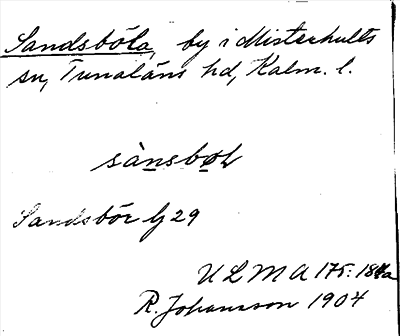 Sandsböla, by i Misterhults
sn, Tunaläns hd, Kalm. l.
sànsbøl
Sandsbör lj 29
ULMA 175: 184a
R. Johansson 1904